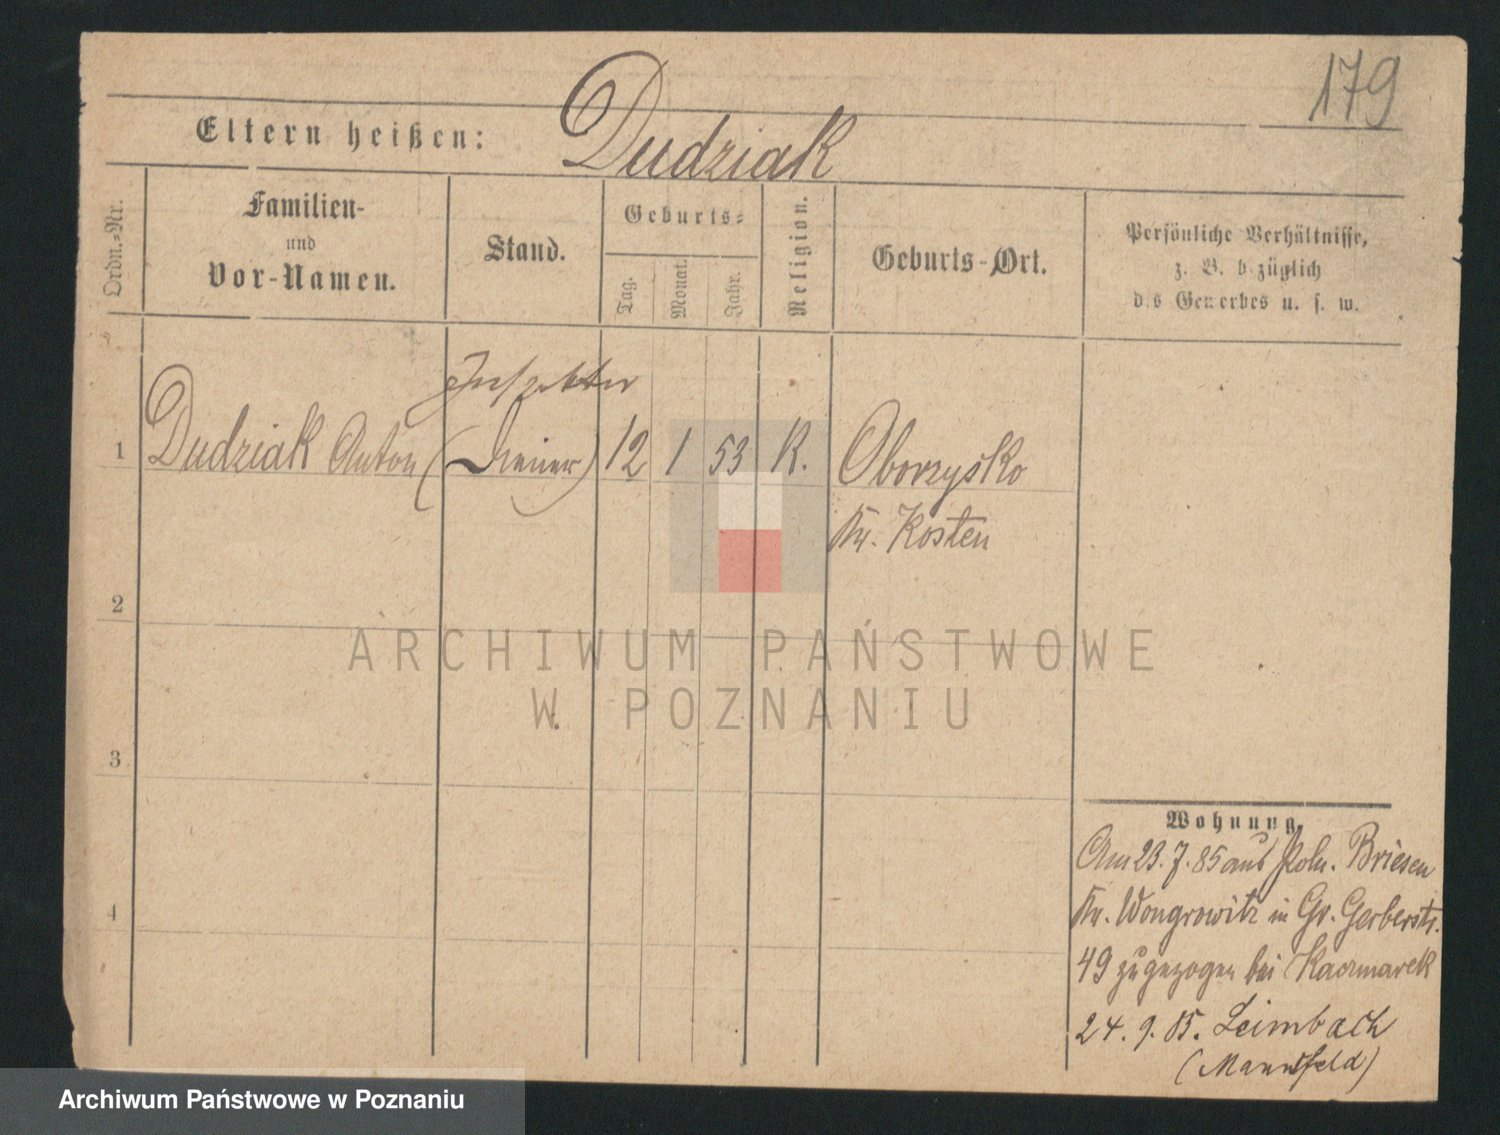 179
Eltern heißen: Dudziak
Ordn.-Nr.
Familien-
und
Vor-Namen.
Stand.
Geburts-
Tag.
Monat.
Jahr.
Religion.
Geburts-Ort.
Persönliche Verhältnisse,
z. B. bezüglich
des Gewerbes u. s. w.
Inspektor
1 Dudziak Anton (Diener) 12 1 53 K. Oborzysko
Kr. Kosten
2
3
4
Wohnung.
Am 23.7.85 aus Poln. Briesen
Kr. Wongrowitz in Gr. Gerberstr.
49 zugezogen bei Kaczmarek
24. 9. 85. Leimbach
(Mansfeld)
ARCHIWUM PAŃSTWOWE
W POZNANIU
Archiwum Państwowe w Poznaniu